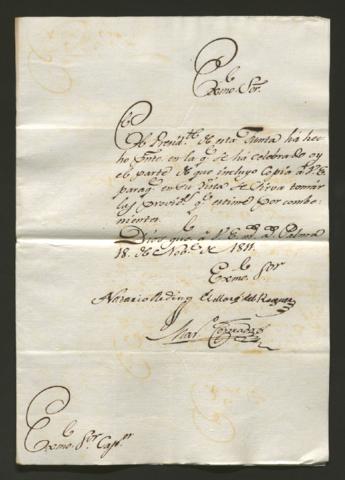 Exmo. Sor.
El Presid.te de esta Junta há hec-
ho pnte. en la q.e se há celebrado oy
el parte de que incluyo Copia á V.E.
paraq.e en su vista se sirva tomar
las provid.s q.e estime por combe-
nientes.
Dios gue. á V.E. m.s a.s Palma
18. de Nov.e de 1811.
Exmo. Sor
Nazario Reding El Marq.s del Reguer
Mar.
Exmo. Sor. Cap.n